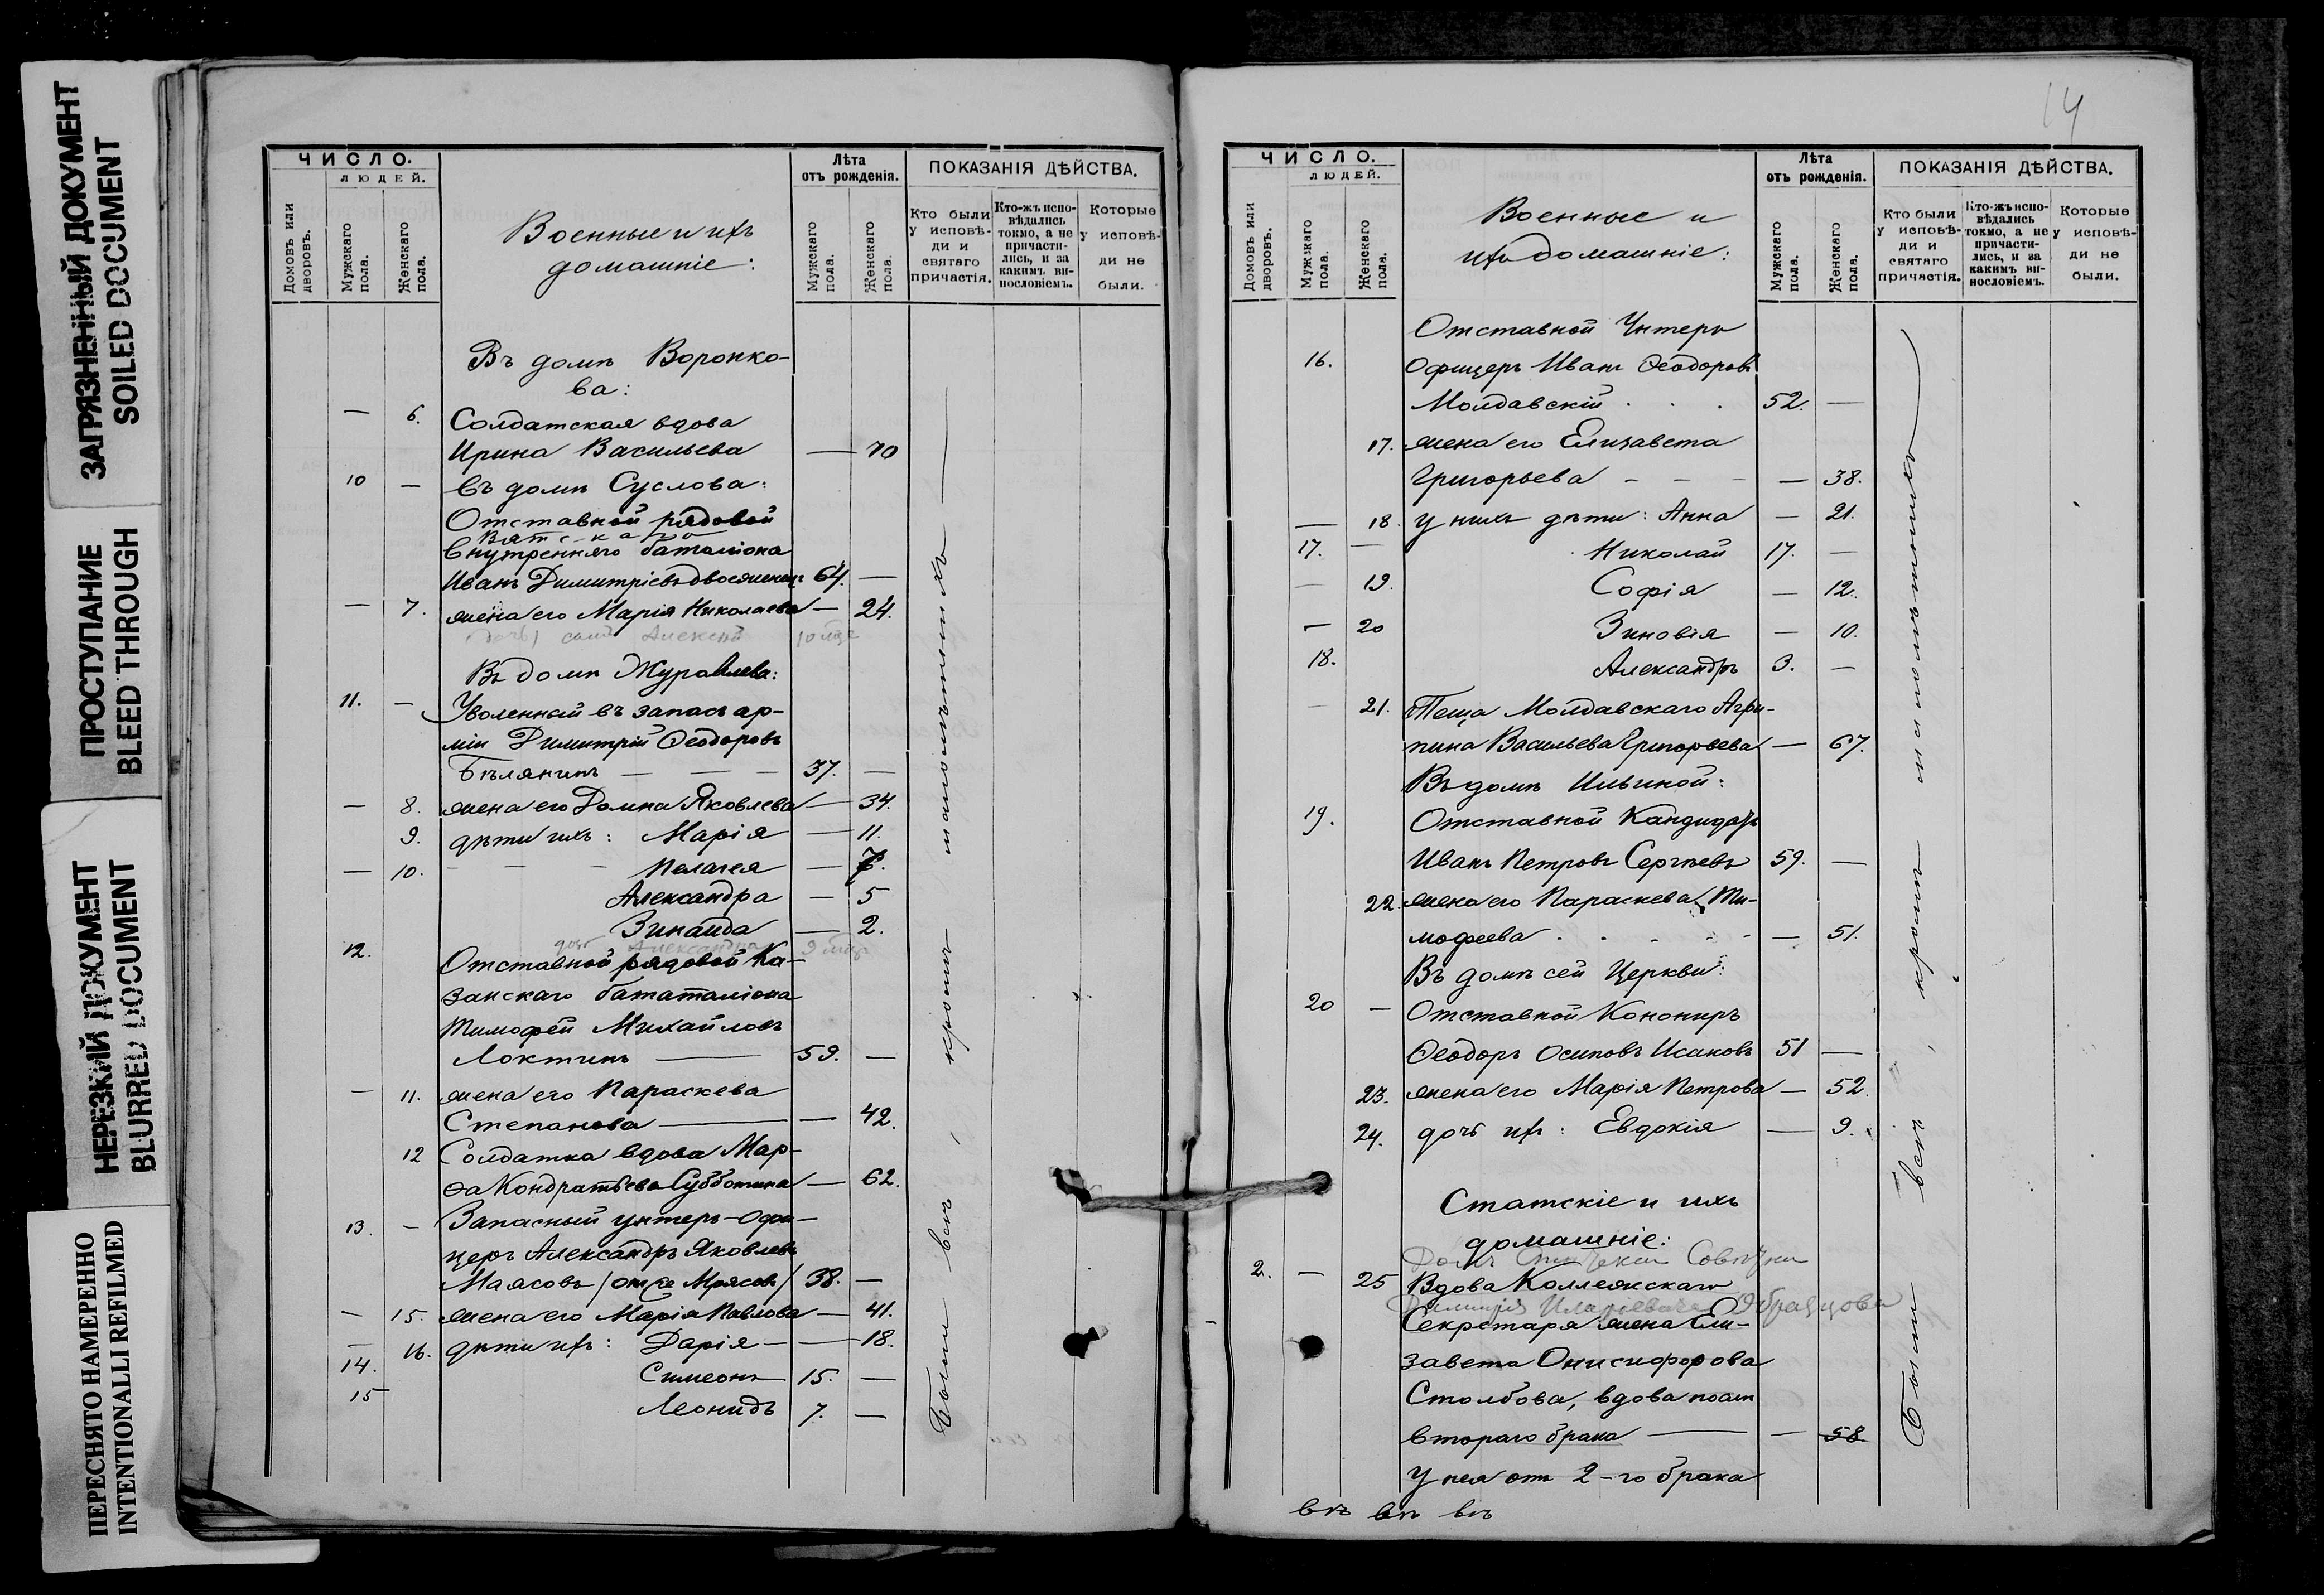 ЗАГРЯЗНЕННЫЙ ДОКУМЕНТ
SOILED DOCUMENT
ПРОСТУПАНИЕ
BLEED THROUGH
НЕРЕЗКИЙ ДОКУМЕНТ
BLURRED DOCUMENT
ПЕРЕСНЯТО НАМЕРЕННО
INTENTIONALLI REFILMED
ЧИСЛО.
ЛЮДЕЙ.
Домовъ или дворовъ.
Мужскаго пола.
Женскаго пола.
Военные и ихъ
домашніе:
Лѣта
отъ рожденія.
Мужскаго пола.
Женскаго пола.
ПОКАЗАНІЯ ДѢЙСТВА.
Кто были у исповѣди и святаго причастія.
Кто-жъ исповѣдались токмо, а не причастились, и за какимъ винословіемъ.
Которые у исповѣди не были.
Въ домѣ Воронко-
ва:
— 6. Солдатская вдова
Ирина Васильева — 70
10 — Въ домѣ Суслова:
Отставной рядовой
Вятскаго
Внутренняго баталіона
Иванъ Димитріевъ 64. —
— 7. жена его Марія Николаева — 24.
Въ домѣ Журавлева:
11. — Уволенный въ запасъ ар-
міи Димитрій Ѳеодоровъ
Бѣлянинъ — — — 37. —
— 8. жена его Домна Яковлева — 34.
9. дѣти ихъ: Марія — 11.
— 10. — — — Пелагея — 7.
Александра — 5
Зинаида — 2.
дочь Александра
12. Отставной рядовой Ка-
занскаго бататаліона
Тимофей Михайловъ
Локтинъ — 59. —
— 11. жена его Параскева
Степанова — — 42.
12 Солдатка вдова Мар-
ѳа Кондратьева Субботина — 62.
13. — Запасный унтеръ-офи-
церъ Александръ Яковлевъ
Маясовъ 38. —
— 15. жена его Марія Павлова — 41.
— 16. дѣти ихъ: Дарія — — 18.
14. Симеонъ 15. —
15 Леонидъ 7. —
Были всѣ, кромѣ малолѣтнихъ
14
ЧИСЛО.
ЛЮДЕЙ.
Домовъ или дворовъ.
Мужскаго пола.
Женскаго пола.
Военные и
ихъ домашніе:
Лѣта
отъ рожденія.
Мужскаго пола.
Женскаго пола.
ПОКАЗАНІЯ ДѢЙСТВА.
Кто были у исповѣди и святаго причастія.
Кто-жъ исповѣдались токмо, а не причастились, и за какимъ винословіемъ.
Которые у исповѣди не были.
Отставной Унтеръ
16. Офицеръ Иванъ Ѳеодоровъ
Молдавскій . . . 52. —
17. жена его Елизавета
Григорьева - - - — 38.
— 18. у нихъ дѣти: Анна — 21.
17. — Николай 17. —
— 19. Софія — 12.
— 20 Зиновія — 10.
18. Александръ 3. —
— 21. Теща Молдавскаго Агри-
пина Васильева Григорьева — 67.
Въ домѣ Ильиной:
19. Отставной Кандидатъ
Иванъ Петровъ Сергѣевъ 59. —
22. жена его Параскева Ти-
мофеева . . - - - — 51.
Въ домѣ сей Церкви:
20 — Отставной Конониръ
Ѳеодоръ Осиповъ Исаковъ 51 —
23. жена его Марія Петрова — 52.
24. дочь ихъ: Евдокія — 9.
Статскіе и ихъ
домашніе:
2. — 25 Вдова Коллежскаго
Секретаря жена Ели-
завета Онисифорова
Столбова, вдова по
втораго брака — — 58
У нея отъ 2-го брака
Были всѣ, кромѣ малолѣтнихъ
въ въ въ